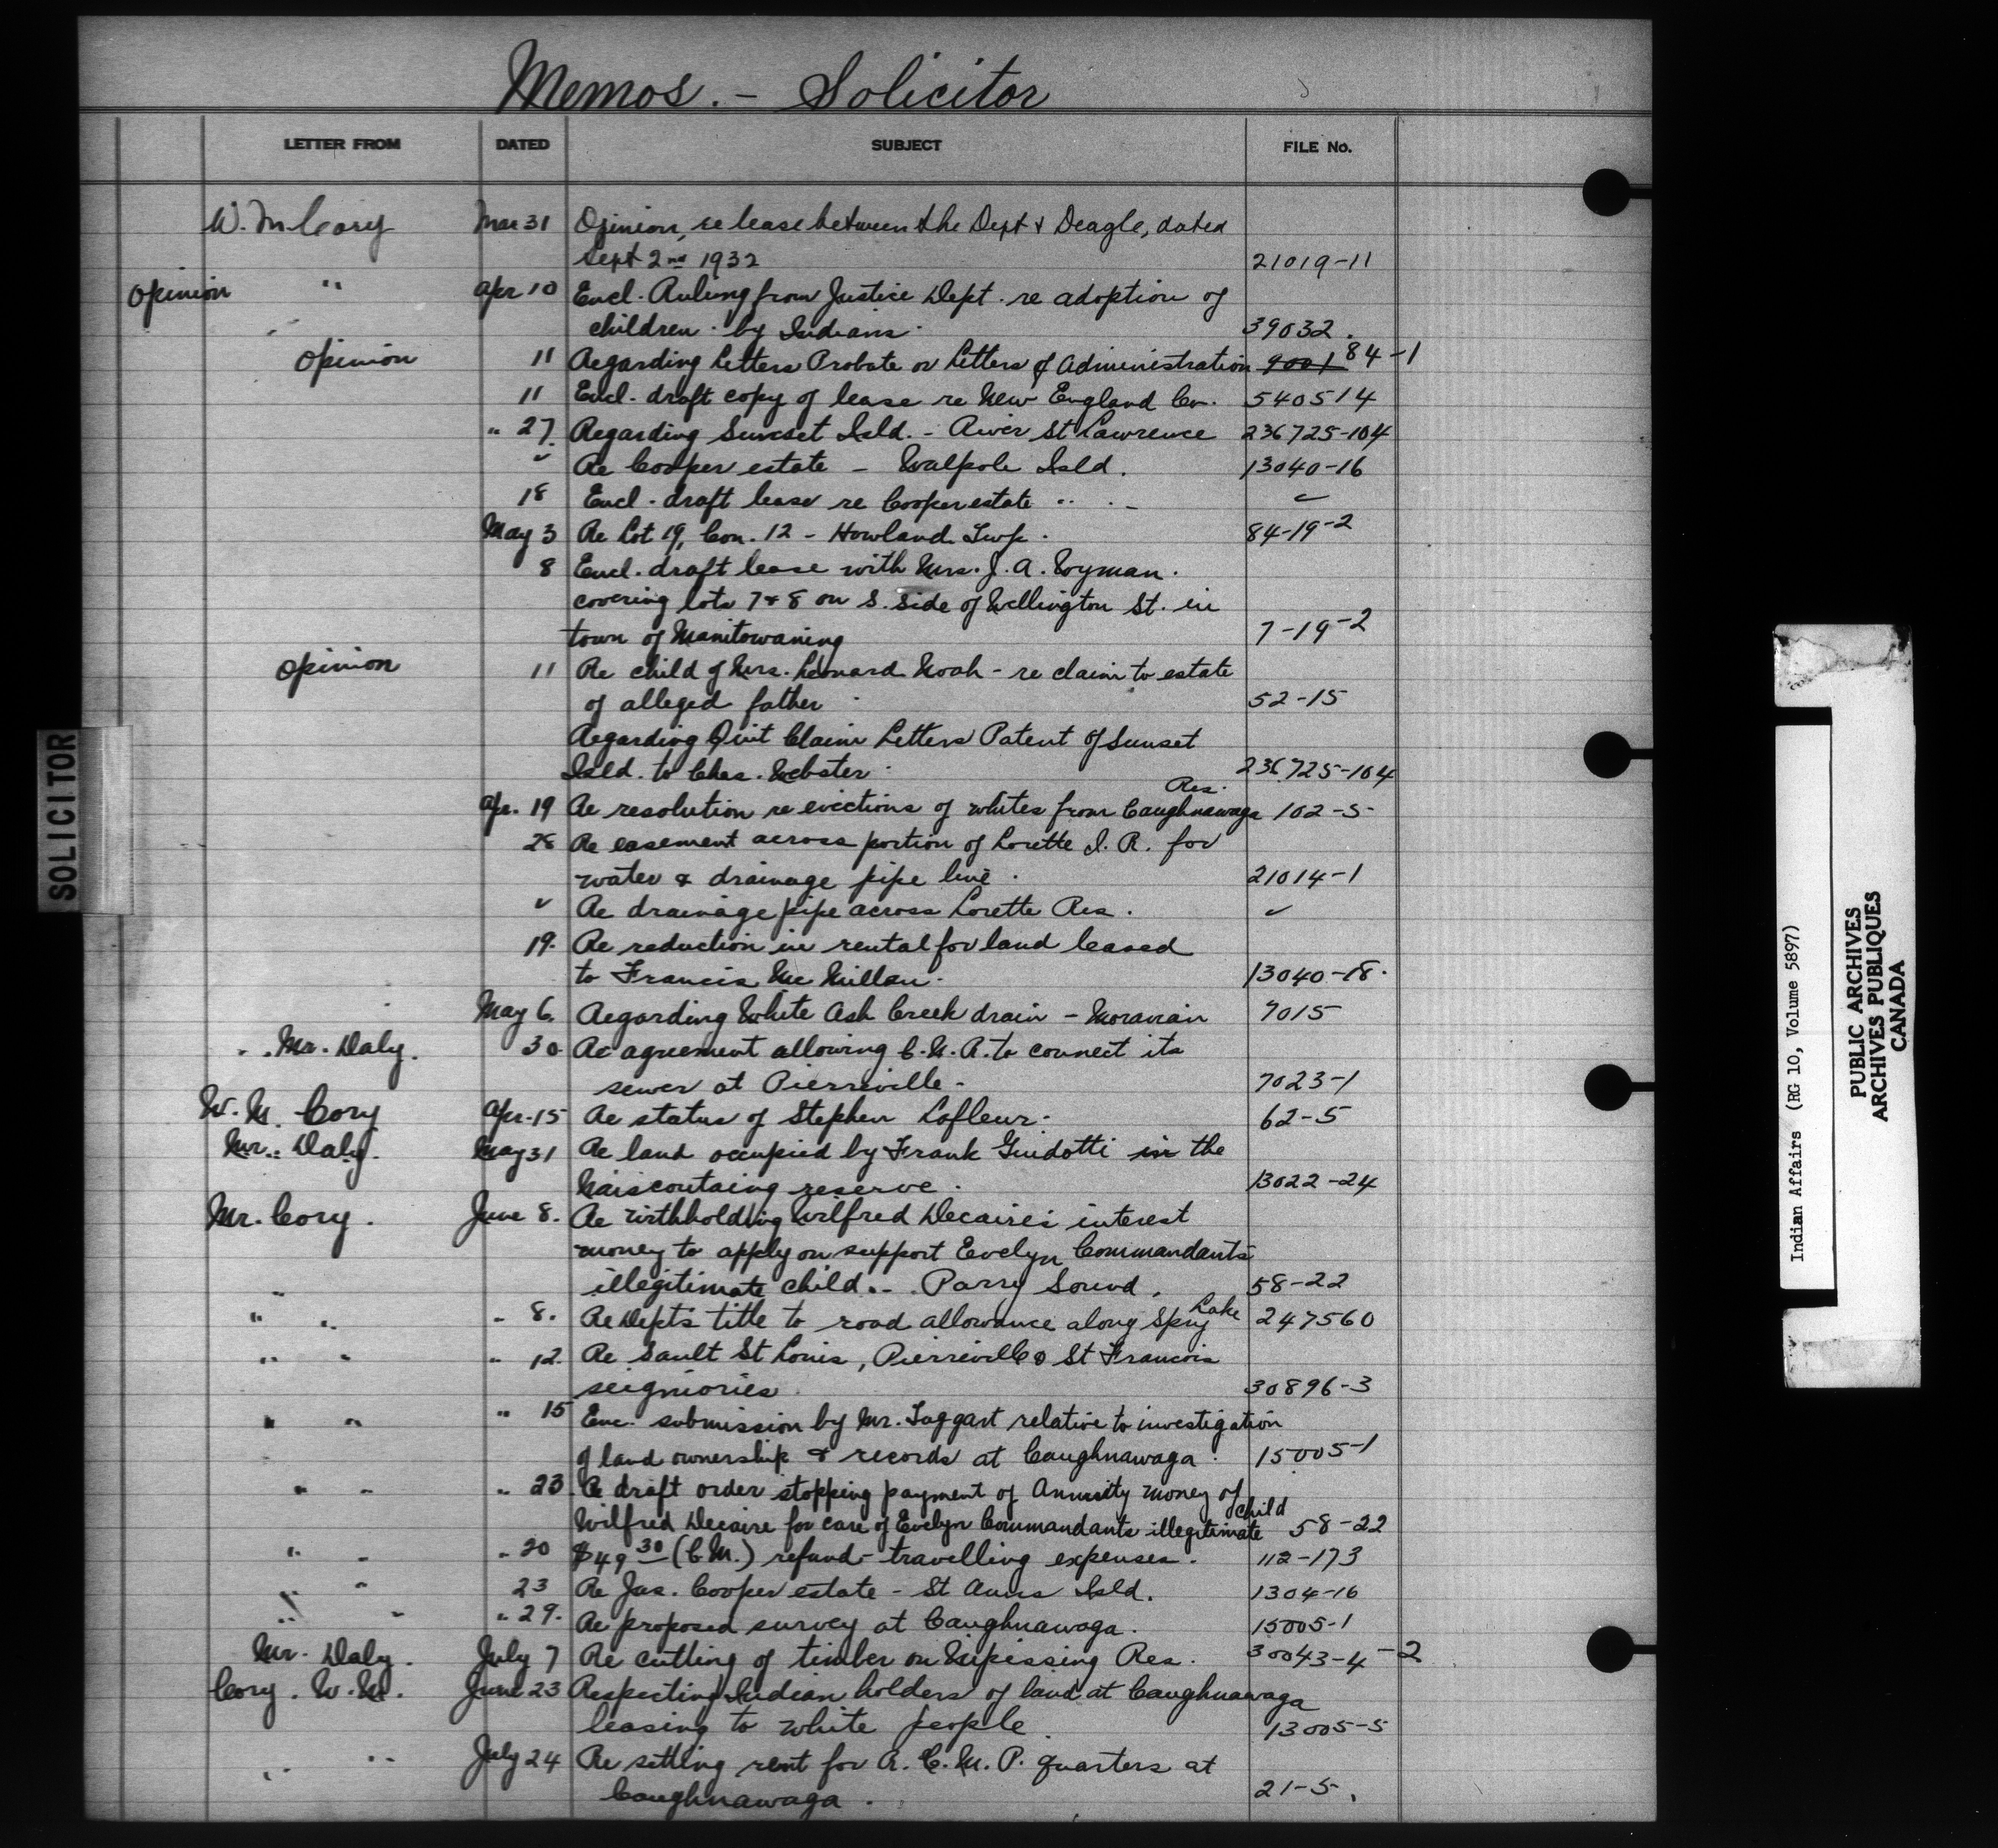 Memos. - Solicitor
LETTER FROM DATED SUBJECT FILE No.
W. M. Cory Mar 31 Opinion, re lease between the Dept & Deagle, dated
Sept 2nd 1932 21019-11
Opinion " Apr 10 Encl. Ruling from Justice Dept. re adoption of
children by Indians. 39032.
Opinion 11 Regarding Letters Probate or Letters of Administration 9001 84-1
11 Encl. draft copy of lease re New England Co. 540514
" 27. Regarding Sunset Isld. - River St Lawrence 236725-104
" Re Cooper estate - Walpole Isld. 13040-16
18 Encl. draft lease re Cooper estate " . - "
May 3 Re Lot 19, Con. 12 - Howland Twp. 84-19-2
8 Encl. draft lease with Mrs. J. A. Wyman.
covering lots 7 & 8 on S. Side of Wellington St. in
town of Manitowaning 7-19-2
Opinion 11 Re child of Mrs. Leonard Noah - re claim to estate
of alleged father 52-15
Regarding Quit Claim Letters Patent of Sunset
Isld. to Chas. Webster. 236725-104
Apr. 19 Re resolution re evictions of whites from Caughnawaga Res. 102-5
28 Re easement across portion of Lorette I. R. for
water & drainage pipe line. 21014-1
" Re drainage pipe across Lorette Res. "
19. Re reduction in rental for land leased
to Francis McMillan. 13040-18.
May 6. Regarding White Ash Creek drain - Moravian 7015
Mr. Daly. 30 Re agreement allowing C.N.R. to connect its
sewer at Pierreville - 7023-1
W. M. Cory Apr. 15 Re status of Stephen Lofleur. 62-5
Mr. Daly. May 31 Re land occupied by Frank Guidotti in the
Naiscoutaing reserve. 13022-24
Mr. Cory. June 8. Re withholding Wilfred Decaire's interest
money to apply on support Evelyn Commandant's
illegitimate child. - Parry Sound. 58-22
" " " 8. Re Dept's title to road allowance along Spry Lake 247560
" " " 12. Re Sault St Louis, Pierreville & St Francois
seigniories. 30896-3
" " " 15 Enc. submission by Mr. Taggart relative to investigation
of land ownership & records at Caughnawaga. 15005-1
" " " 23. Re draft order stopping payment of Annuity money of
Wilfred Decaire for care of Evelyn Commandants illegitimate child 58-22
" " " 20 $49 30 (C.M.) refund - travelling expenses. 112-173
" " 23 Re Jas. Cooper estate - St Anns Isld. 1304-16
" " " 29. Re proposed survey at Caughnawaga. 15005-1
Mr. Daly. July 7 Re cutting of timber on Nipissing Res. 30043-4-2
Cory. W. M. June 23 Respecting Indian holders of land at Caughnawaga
leasing to white people 13005-5
" " July 24 Re setting rent for R.C.M.P. quarters at
Caughnawaga. 21-5.
SOLICITOR
Indian Affairs (RG 10, Volume 5897)
PUBLIC ARCHIVES
ARCHIVES PUBLIQUES
CANADA